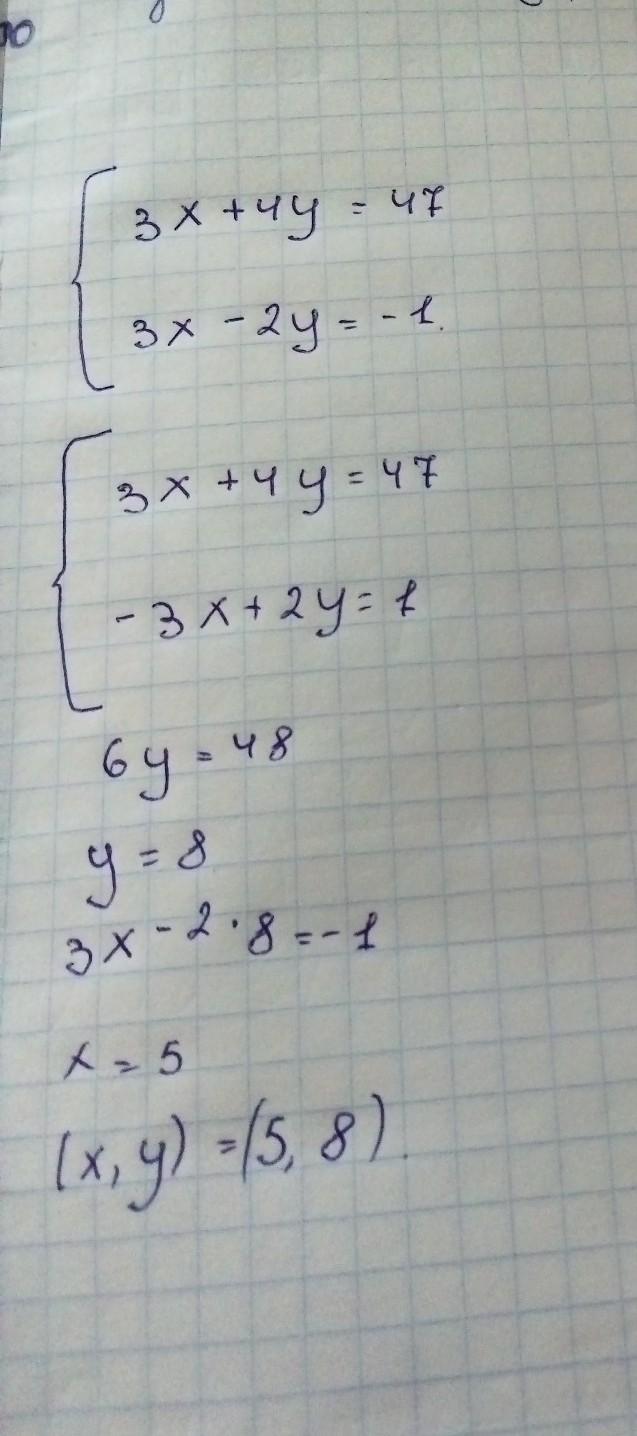 3x + 4y = 47
3x - 2y = - 1.
3x + 4y = 47
- 3x + 2y = 1
6y = 48
y = 8
3x - 2 · 8 = - 1
x = 5
(x, y) = (5, 8).